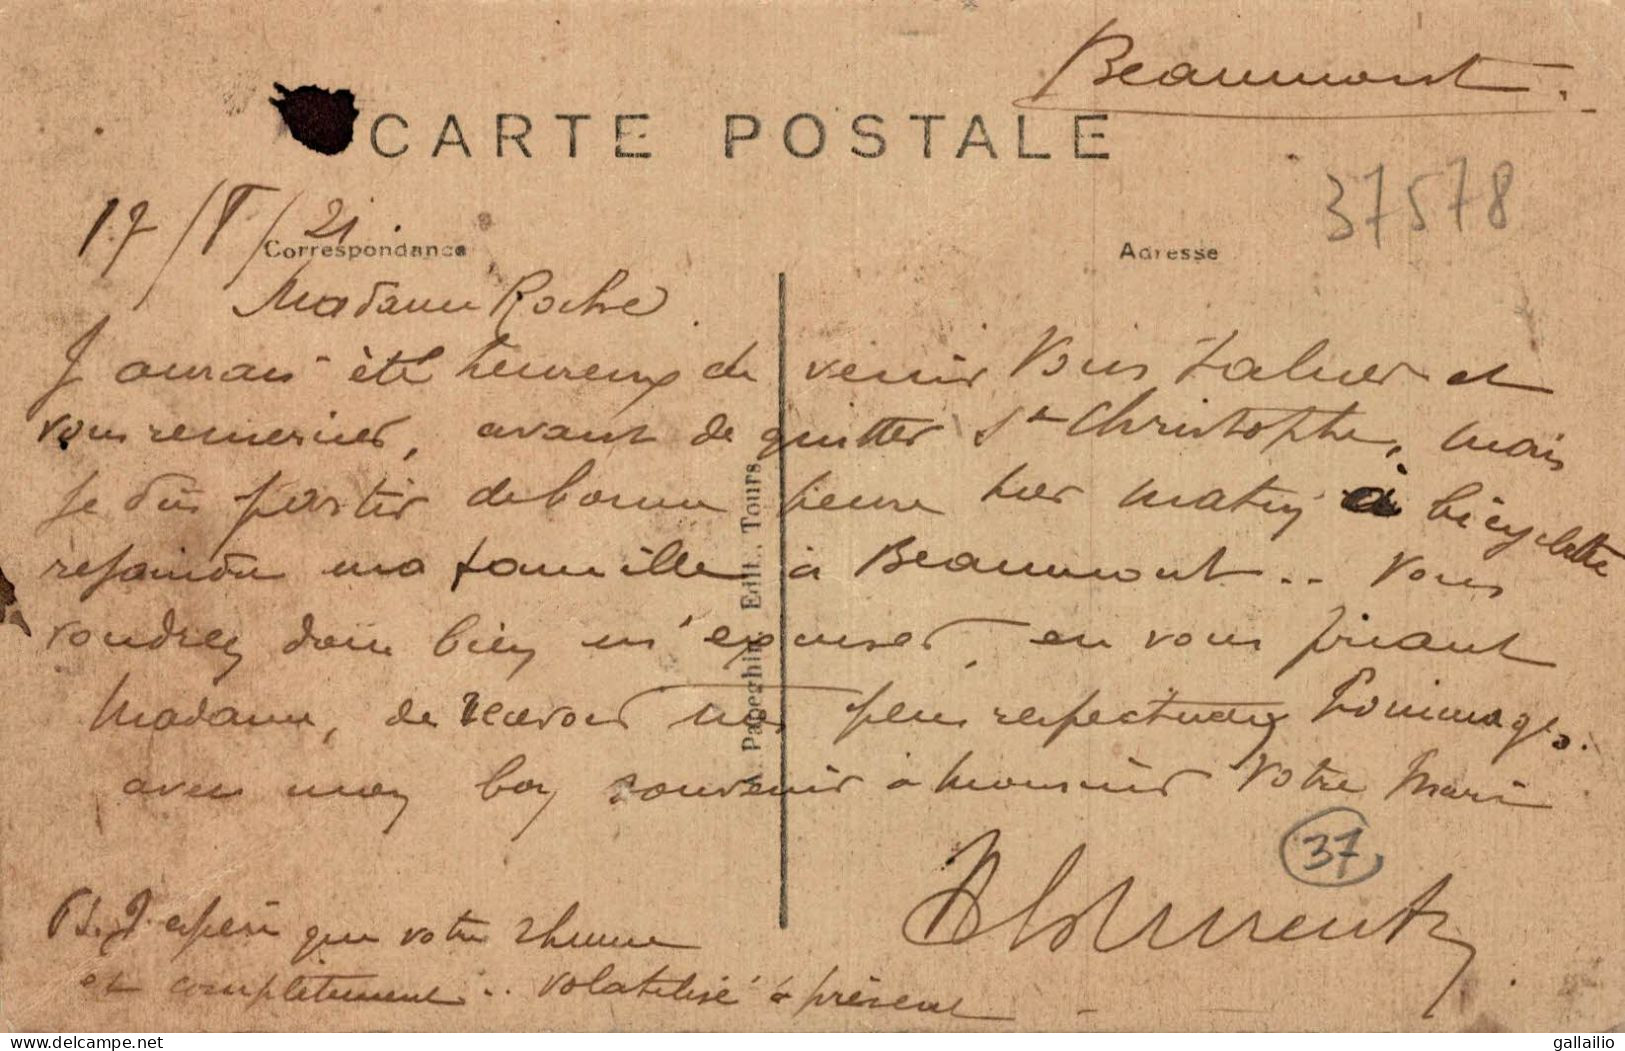 Beaumont.
CARTE POSTALE
37578
17/V/21.
Correspondance
Adresse
Madame Roche.
J'aurais été heureux de venir vous saluer et
vous remercier, avant de quitter St Christophe, mais
je dus partir de bonne heure hier matin à bicyclette
rejoindre ma famille à Beaumont.. Vous
voudrez donc bien m'excuser, en vous priant
Madame, de recevoir mes plus respectueux hommages.
avec mon bon souvenir à monsieur votre mari
37
PS. J'espère que votre rhume
est complètement.. volatilisé à présent
A. Papeghin, Edit., Tours.
delcampe.net
gallailio